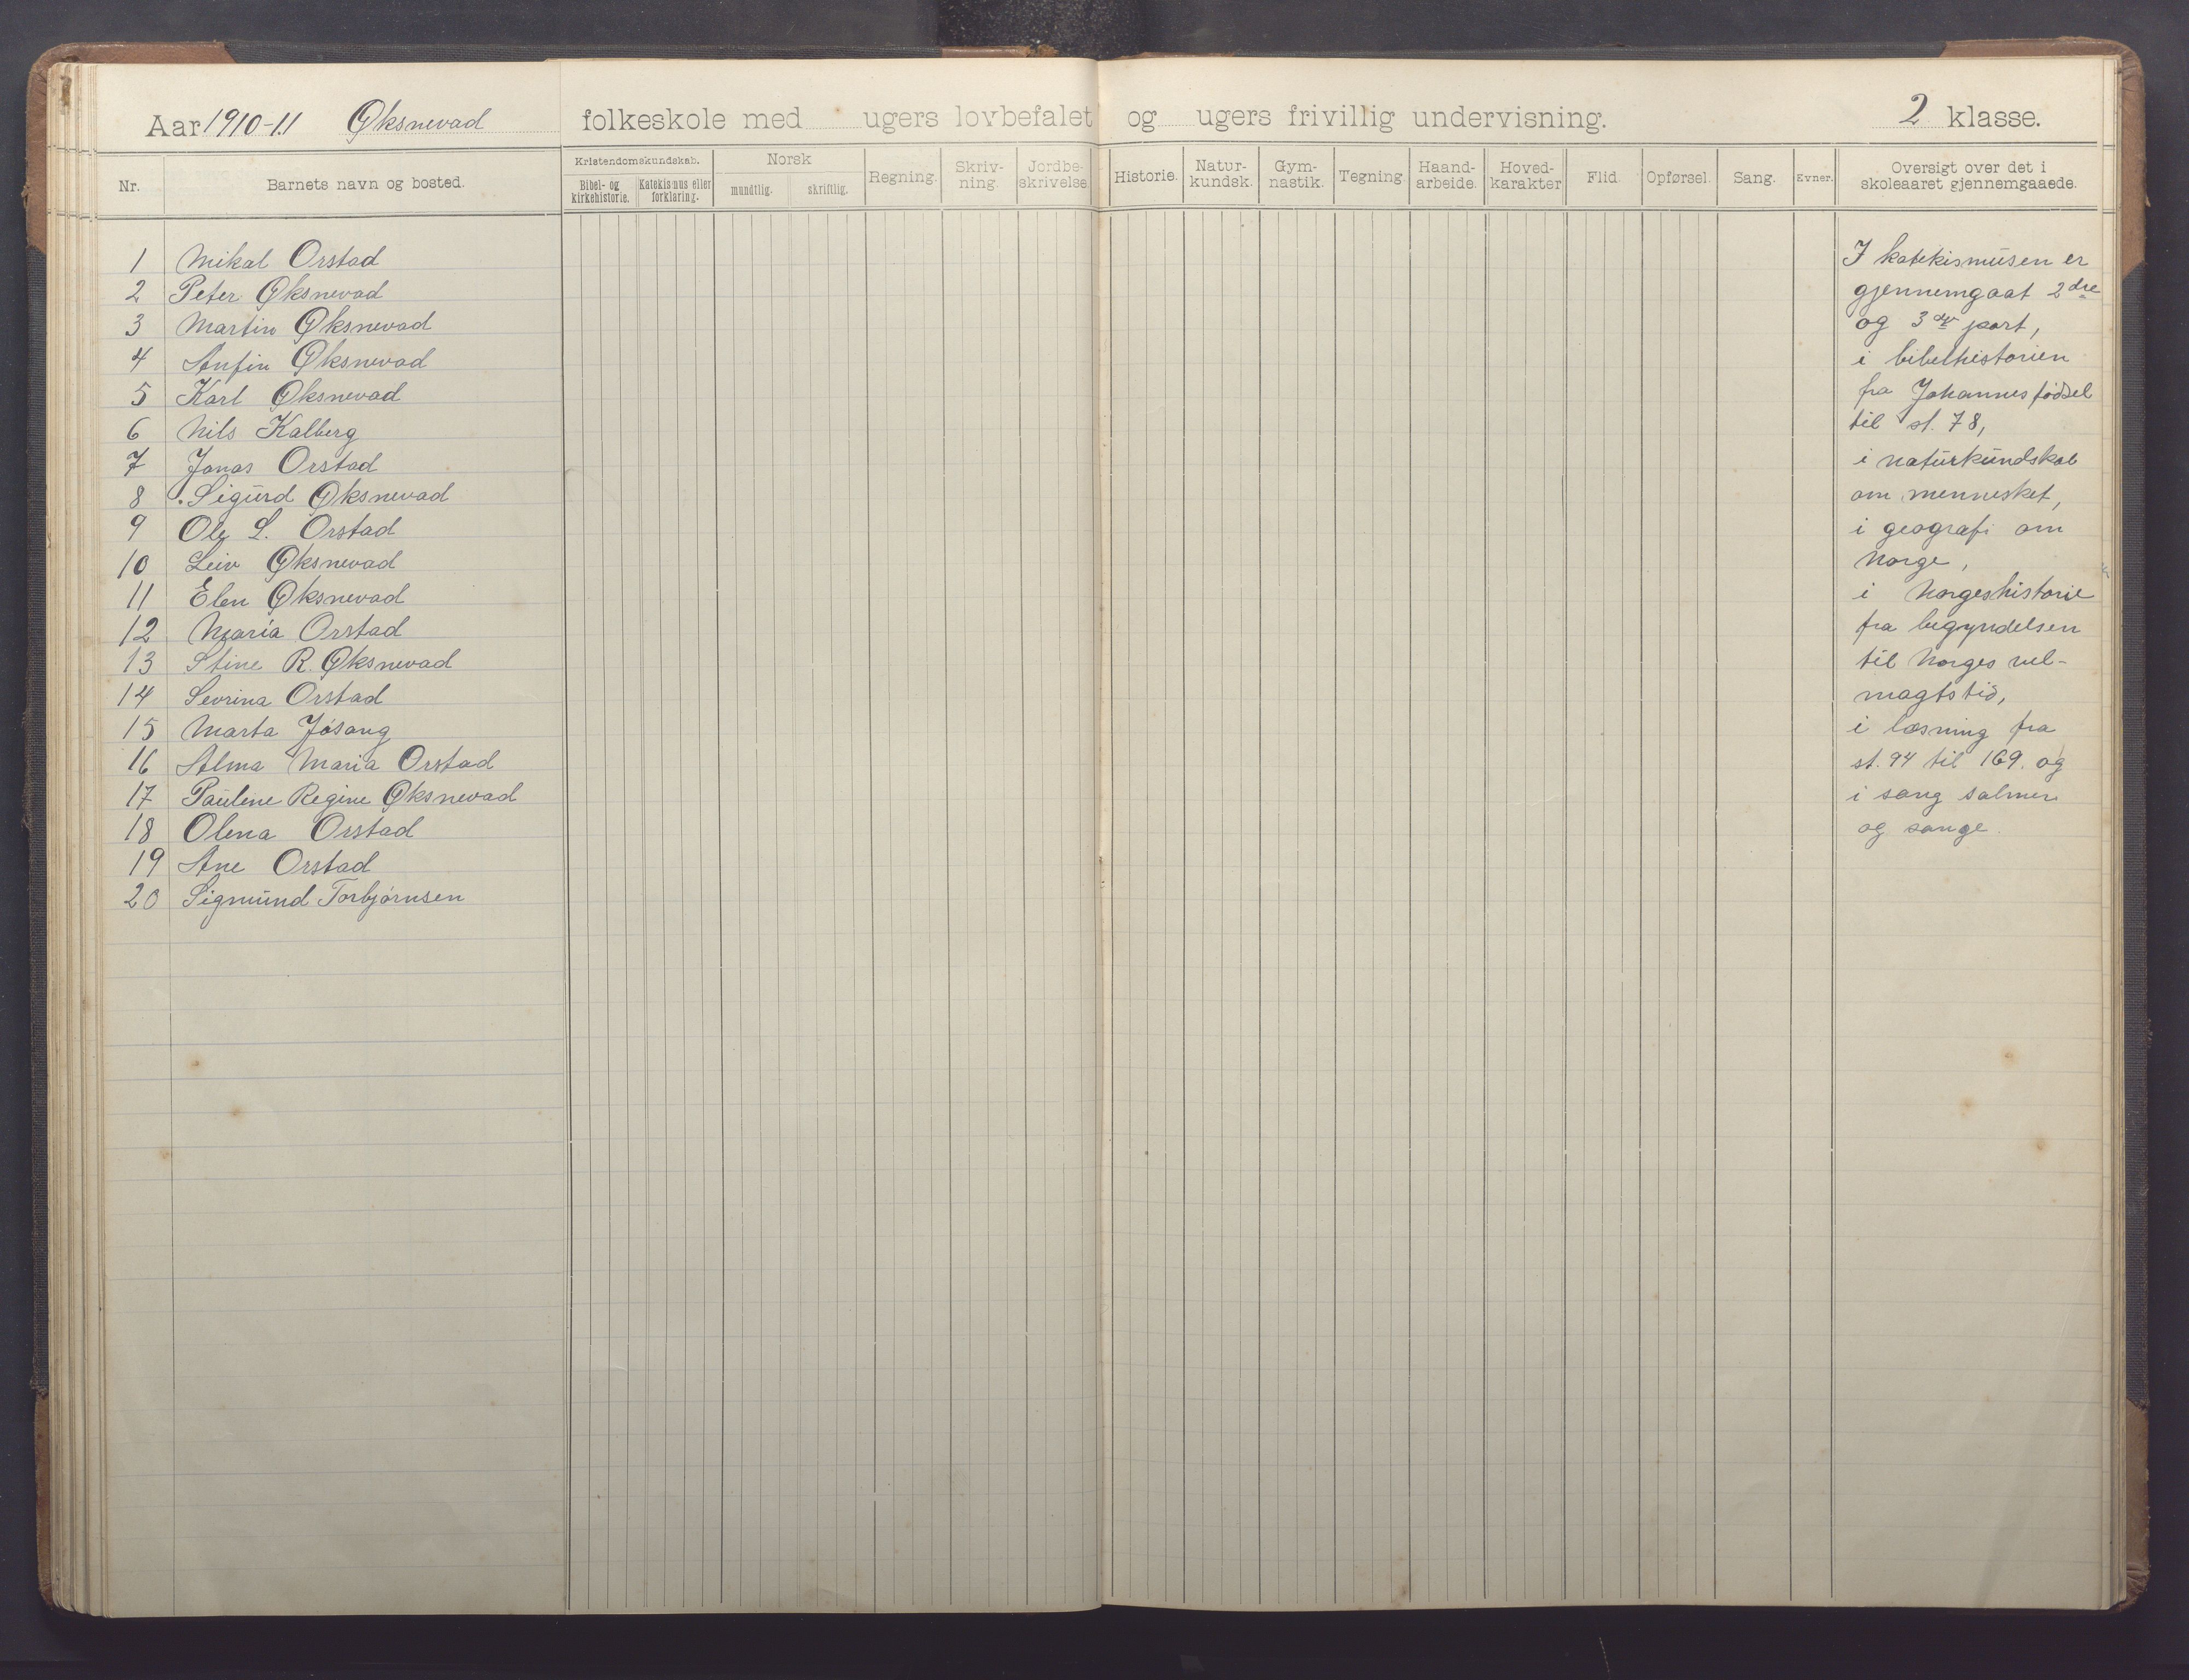 Aar 1910-11 Øksnevad folkeskole med ugers lovbefalet og ugers frivillig undervisning. 2 klasse.
Nr.
Barnets navn og bosted.
Kristendomskundskab.
Bibel- og kirkehistorie.
Katekismus eller forklaring.
Norsk
mundtlig.
skriftlig.
Regning.
Skriv-
ning.
Jordbe-
skrivelse
Historie.
Natur-
kundsk.
Gym-
nastik.
Tegning
Haand-
arbeide.
Hoved-
karakter
Flid.
Opførsel.
Sang.
Evner.
Oversigt over det i
skoleaaret gjennemgaaede.
1 Mikal Orstad
2 Peter Øksnevad
3 Martin Øksnevad
4 Anfin Øksnevad
5 Karl Øksnevad
6 Nils Kalberg
7 Jonas Orstad
8 Sigurd Øksnevad
9 Ole L. Orstad
10 Leiv Øksnevad
11 Elen Øksnevad
12 Maria Orstad
13 Stine R. Øksnevad
14 Sevrina Orstad
15 Marta Jøsang
16 Alma Maria Orstad
17 Pauline Regine Øksnevad
18 Olena Orstad
19 Ane Orstad
20 Sigmund Torbjørnsen
I katekismusen er
gjennemgaat 2dre
og 3die part,
i bibelhistorien
fra Johannes fødsel
til st. 78,
i naturkundskab
om mennesket,
i geografi om
Norge,
i Norgeshistorie
fra begyndelsen
til Norges vel-
magtstid,
i læsning fra
st. 94 til 169. og
i sang salmer
og sange.